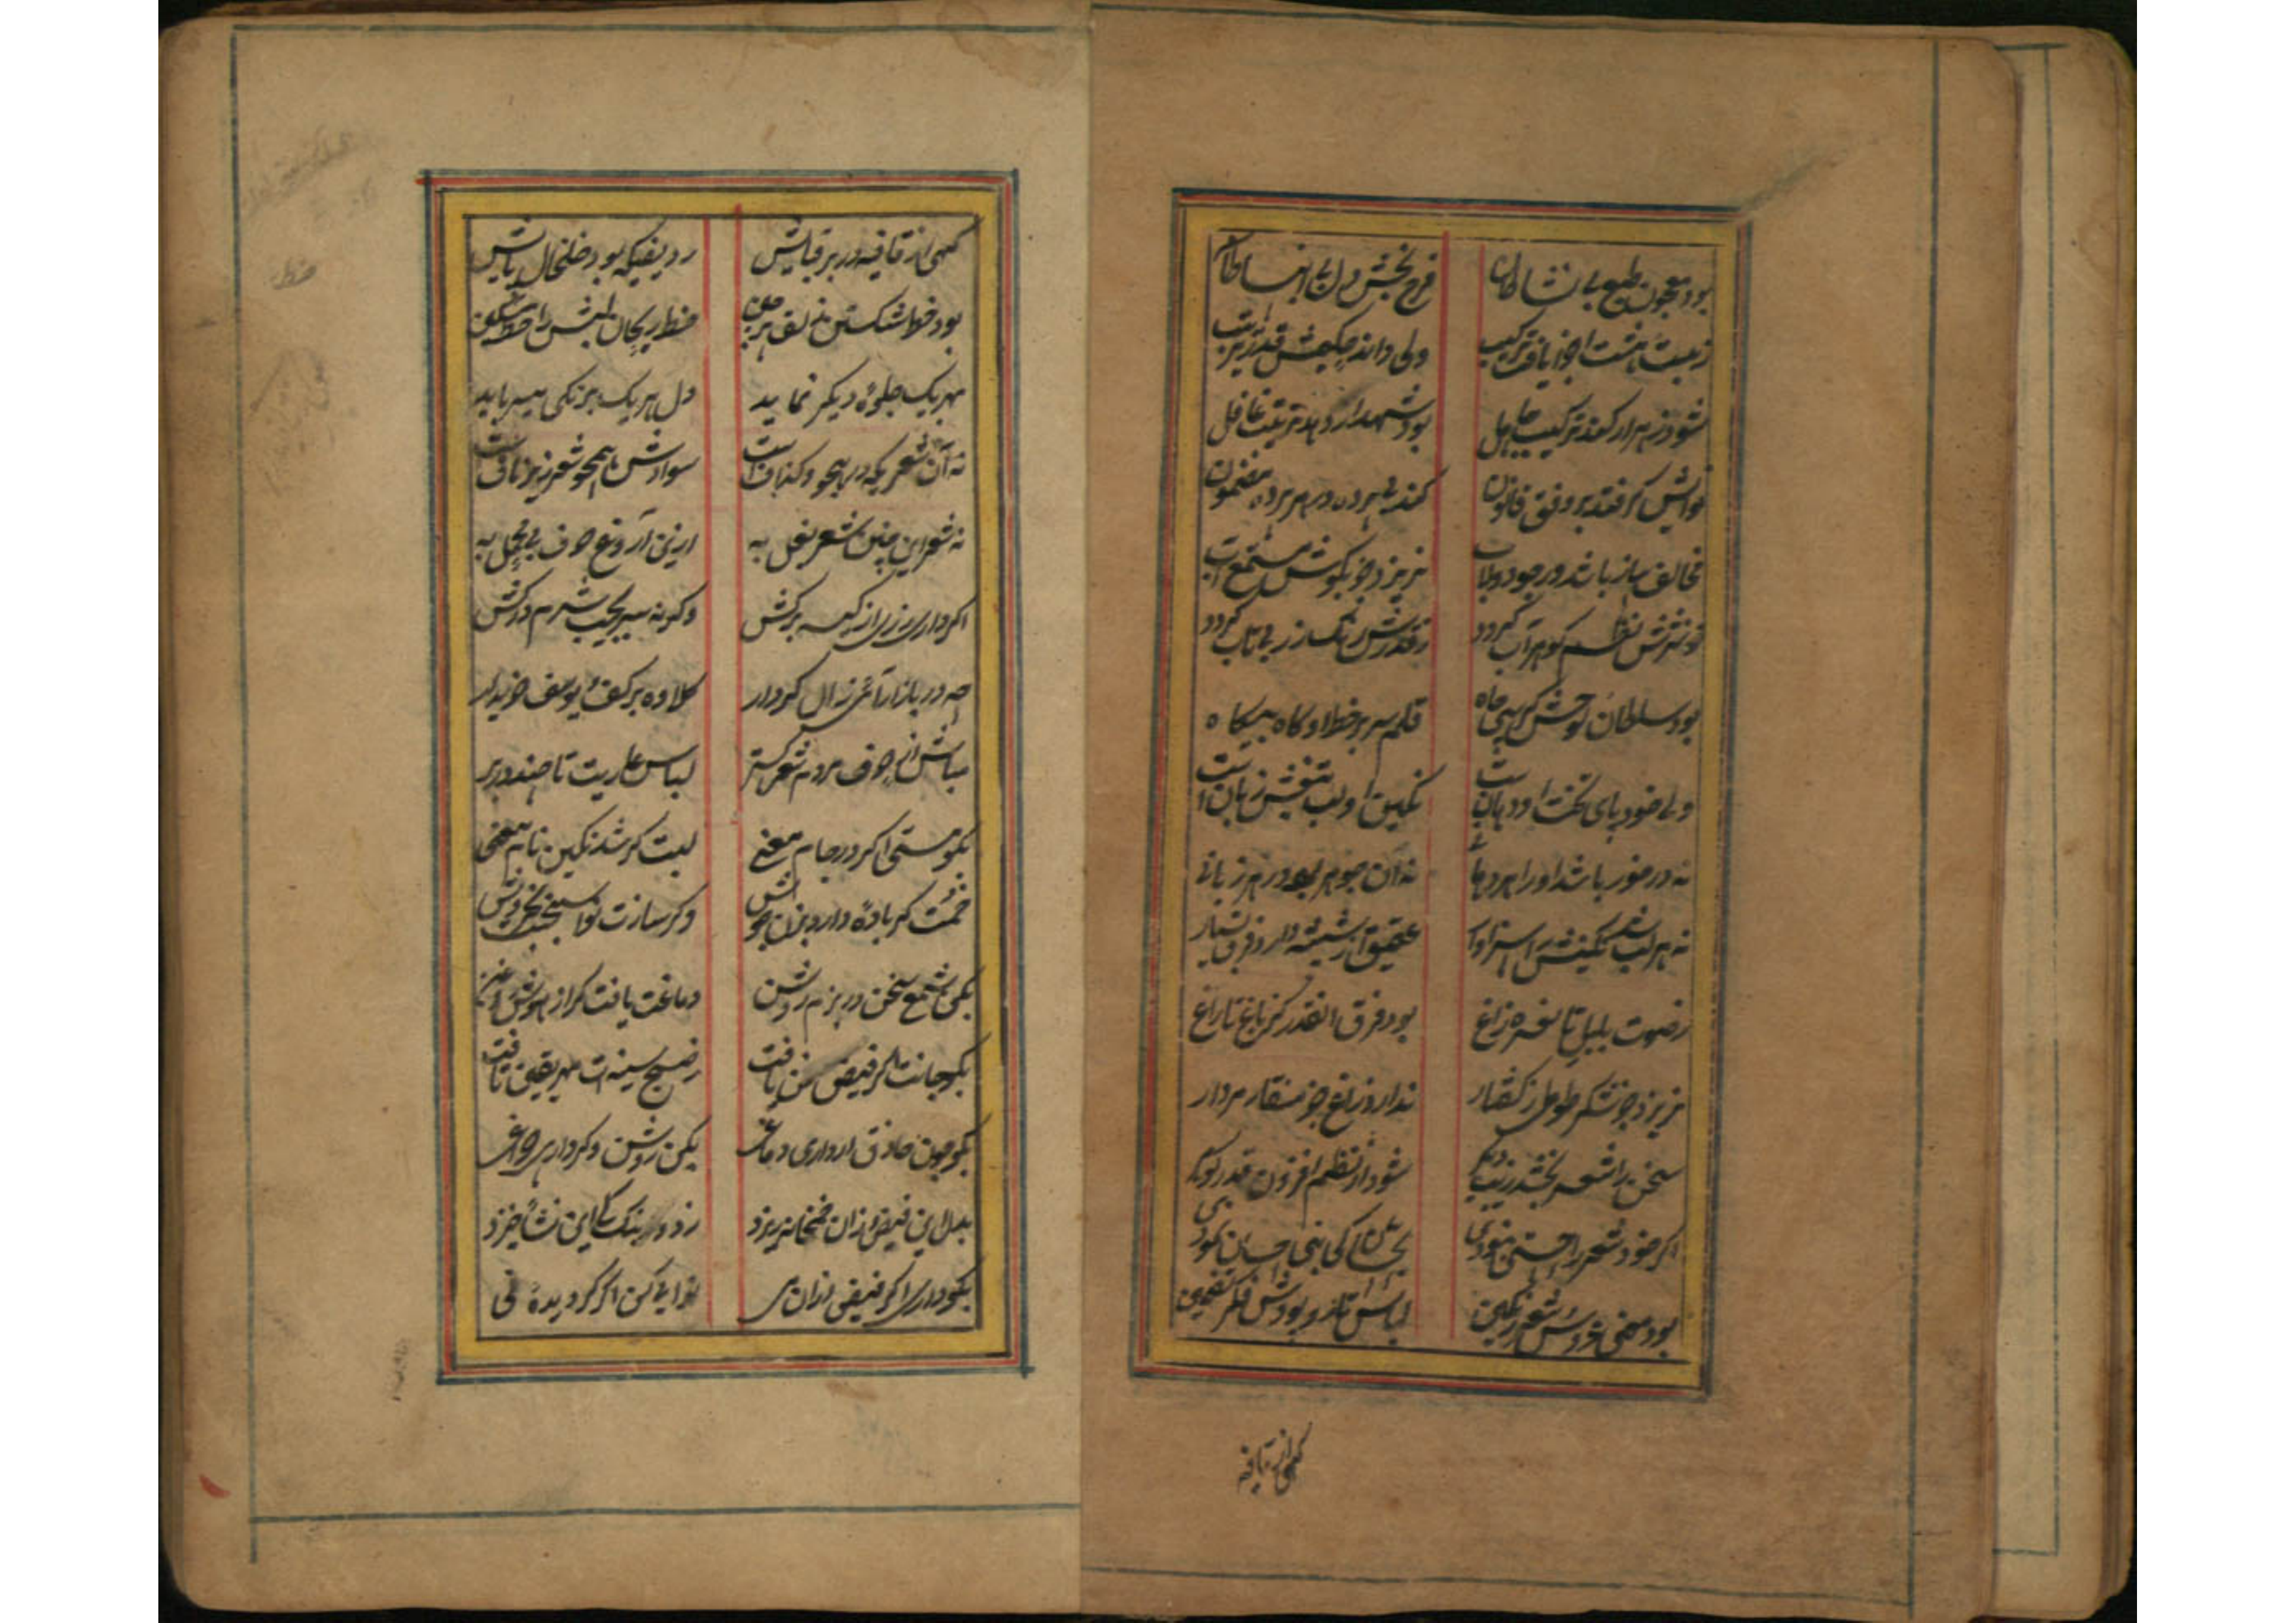 بود معجون طبع بی نشاطان فرح بخش دل
ز بیت هشت اجزا یافت ترکیب ولی داند حکیمش قدر ترتیب
شود زهر ار کند ترکیب جاهل بود شهد ار دهد ترتیب غافل
نوایش گر فتد بر وفق قانون کند بی پرده در هر پرده مضمون
مخالف ساز باشد در جود ولاب نریزد جز بکوش مستمع آب
چو نثرش نظم گوهر آب گردد ز قدرش رنک زر بی تاب گردد
بود سلطان لوحش کرسی جاه قلم سر بر خط او گاه بیگاه
ولی خود پای تخت او دهان است نگین او لب نقش زبان است
نه در خور باشد او را هر دهانی نه آن جوهر بود در هر زبانی
نه هر لب شد نگینش را سزاوار عقیق از شیشه دارد فرق بسیار
ز صوت بلبل تا نغمه زاغ بود فرق انقدر کز باغ تا راغ
نریزد جز شکر طوطی ز گفتار ندارد زاغ جز منقار مردار
سخن را شعر بخشد زیب دیگر شود از نظم افزون قدر گوهر
اگر خود شعر را حسنی نبودی بجا کی نبی احسان نمودی
بود معنی عروس شعر رنگین لباس تار و پودش فکر تضمین
گهی از قافیه
گهی از قافیه در بر قبایش ردیفیکه بود خلخال پایش
بود خط شکستن زلف پرچین خط ریحان لبش را خط مشکین
بهریک جلوه دیگر نماید دل هریک برنگی میرباید
نه آن شعریکه در هجو و گزاف است سوادش همچو شعر زیر ناف است
نه شعر این چنین شعر بغل به ازین آروغ حرف بی محل به
اگر داری زری از کیسه برکش وگرنه سر بجیب شرم درکش
چه در بازار آئی زال کردار کلاوه بر کف و یوسف خریدار
مباش از حرف مردم شعر گستر لباس عاریت تا چند در بر
بگو مستی اگر در جام معنی لبت گر شد نگین نام معنی
خمت گر باده دارد بزن جوش وگر سازت نوا سنجد بخروش
بکن شمع سخن در بزم روشن دماغت یافت گر از هوش روغن
بگو جانت گر فیض سخن یافت ز صبح سینه ات مهر یقین تافت
بگو چون حاذق ار داری دماغی بکن روشن وگر داری چراغی
بدل این فیض زان خمخانه ریزد ز دود بنک کی این نشأ خیزد
بگو داری اگر فیضی ازان می نوائی کن اگر گردیده نی